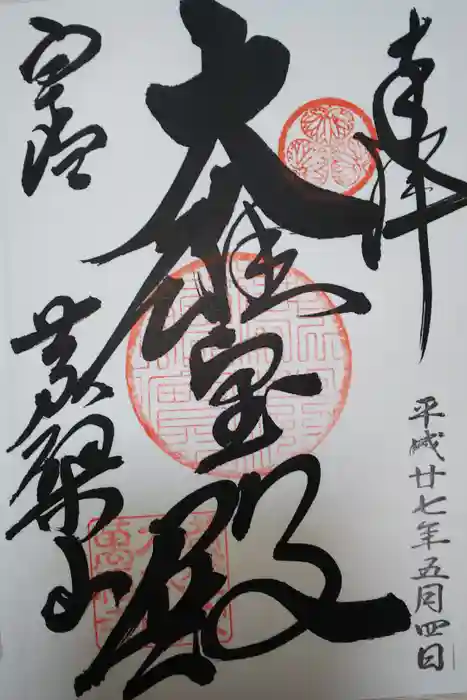 奉拝
平成廿七年五月四日
大雄宝殿
宇治
黄檗山